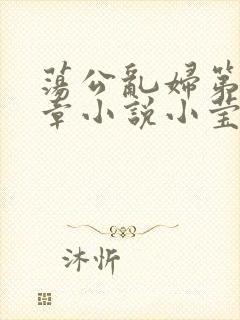 蕩公亂婦第
章小説小莹
沐忻